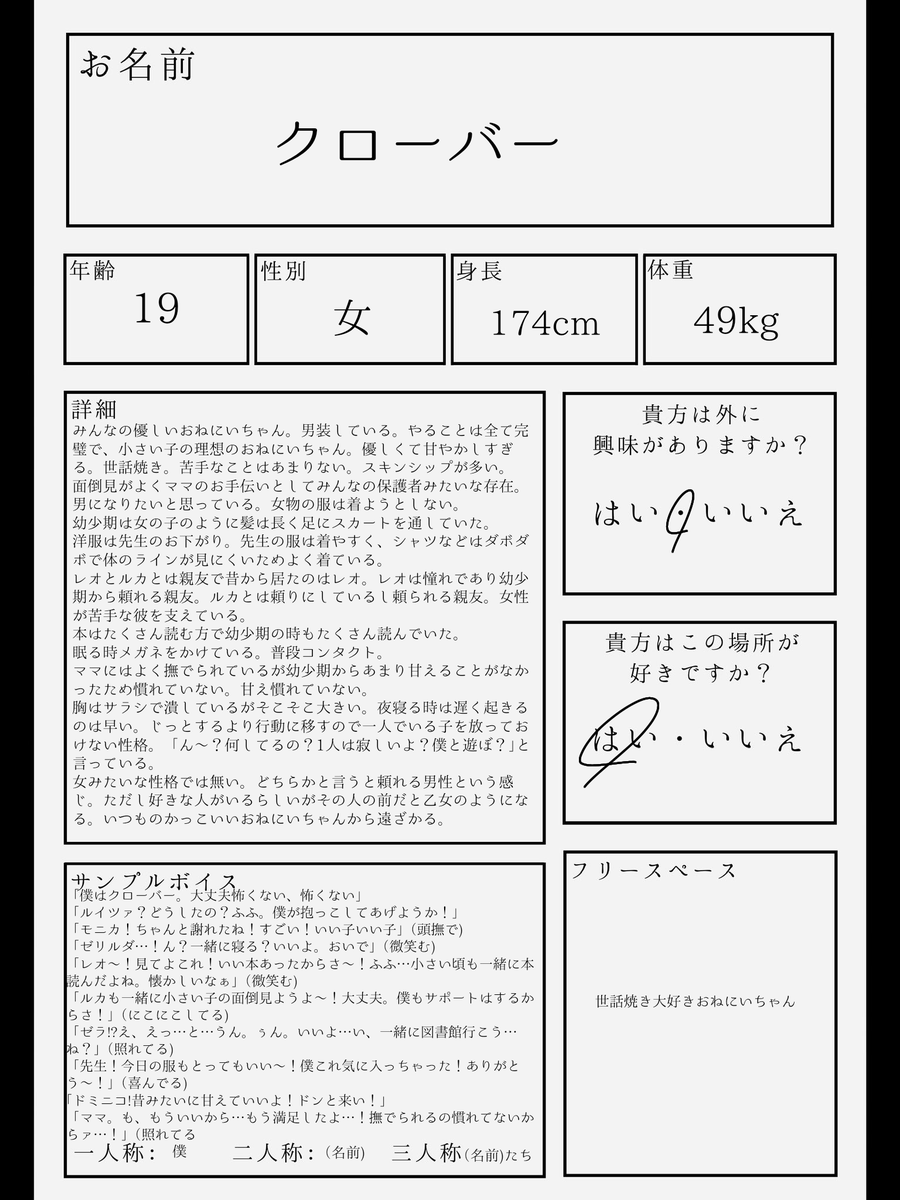 お名前
クローバー
年齢
19
性別
女
身長
174cm
体重
49kg
詳細
みんなの優しいおねにいちゃん。男装している。やることは全て完
璧で、小さい子の理想のおねにいちゃん。優しくて甘やかしすぎ
る。世話焼き。苦手なことはあまりない。スキンシップが多い。
面倒見がよくママのお手伝いとしてみんなの保護者みたいな存在。
男になりたいと思っている。女物の服は着ようとしない。
幼少期は女の子のように髪は長く足にスカートを通していた。
洋服は先生のお下がり。先生の服は着やすく、シャツなどはダボダ
ボで体のラインが見にくいためよく着ている。
レオとルカとは親友で昔から居たのはレオ。レオは憧れであり幼少
期から頼れる親友。ルカとは頼りにしているし頼られる親友。女性
が苦手な彼を支えている。
本はたくさん読む方で幼少期の時もたくさん読んでいた。
眠る時メガネをかけている。普段コンタクト。
ママにはよく撫でられているが幼少期からあまり甘えることがなか
ったため慣れていない。甘え慣れていない。
胸はサラシで潰しているがそこそこ大きい。夜寝る時は遅く起きる
のは早い。じっとするより行動に移すので一人でいる子を放ってお
けない性格。「ん〜？何してるの？1人は寂しいよ？僕と遊ぼ？」と
言っている。
女みたいな性格では無い。どちらかと言うと頼れる男性という感
じ。ただし好きな人がいるらしいがその人の前だと乙女のようにな
る。いつものかっこいいおねにいちゃんから遠ざかる。
貴方は外に
興味がありますか？
はい・いいえ
貴方はこの場所が
好きですか？
はい・いいえ
サンプルボイス
「僕はクローバー。大丈夫怖くない、怖くない」
「ルイツァ？どうしたの？ふふ。僕が抱っこしてあげようか！」
「モニカ！ちゃんと謝れたね！すごい！いい子いい子」(頭撫で)
「ゼリルダ…！ん？一緒に寝る？いいよ。おいで」(微笑む)
「レオ〜！見てよこれ！いい本あったからさ〜！ふふ…小さい頃も一緒に本
読んだよね。懐かしいなぁ」(微笑む)
「ルカも一緒に小さい子の面倒見ようよ〜！大丈夫。僕もサポートはするか
らさ！」(にこにこしてる)
「ゼラ!?え、えっ…と…うん。ぅん。いいよ…い、一緒に図書館行こう…
ね？」(照れてる)
「先生！今日の服もとってもいい〜！僕これ気に入っちゃった！ありがと
う〜！」(喜んでる)
「ドミニコ!昔みたいに甘えていいよ！ドンと来い！」
「ママ。も、もういいから…もう満足したよ…！撫でられるの慣れてないか
らァ…！」(照れてる
一人称： 僕 二人称：(名前) 三人称(名前)たち
フリースペース
世話焼き大好きおねにいちゃん